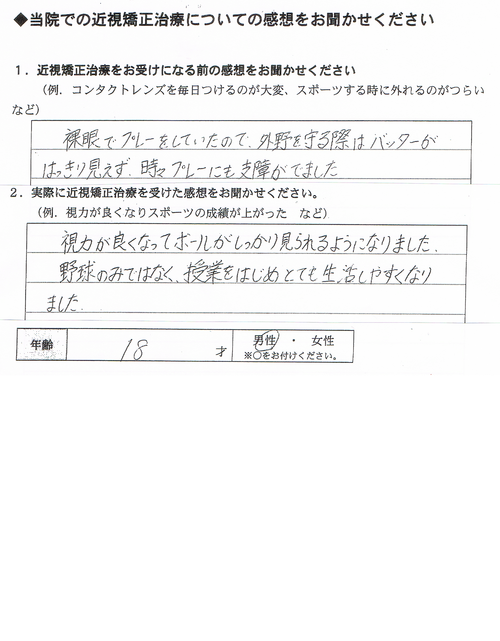 ◆当院での近視矯正治療についての感想をお聞かせください
１．近視矯正治療をお受けになる前の感想をお聞かせください
（例．コンタクトレンズを毎日つけるのが大変、スポーツする時に外れるのがつらい
など）
裸眼でプレーをしていたので、外野を守る際はバッターが
はっきり見えず、時々プレーにも支障がでました
２．実際に近視矯正治療を受けた感想をお聞かせください。
（例．視力が良くなりスポーツの成績が上がった　など）
視力が良くなってボールがしっかり見られるようになりました.
野球のみではなく、授業をはじめとても生活しやすくなり
ました.
年齢 18 才 男性 ・ 女性
※○をお付けください。